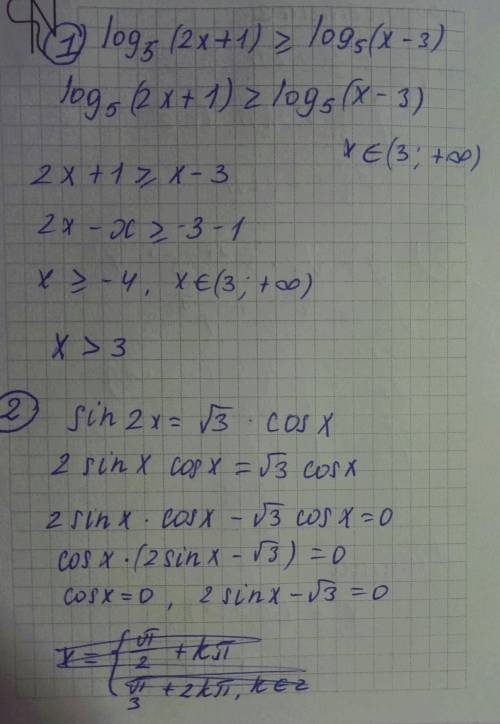 1) log₅(2x+1) ≥ log₅(x-3)
log₅(2x+1) ≥ log₅(x-3)
x∈(3; +∞)
2x+1 ≥ x-3
2x-x ≥ -3-1
x ≥ -4, x∈(3; +∞)
x > 3
2 sin 2x = √3 · cos x
2 sin x cos x = √3 cos x
2 sin x · cos x - √3 cos x = 0
cos x · (2 sin x - √3) = 0
cos x = 0, 2 sin x - √3 = 0
x = { π/2 + kπ
π/3 + 2kπ, k∈z